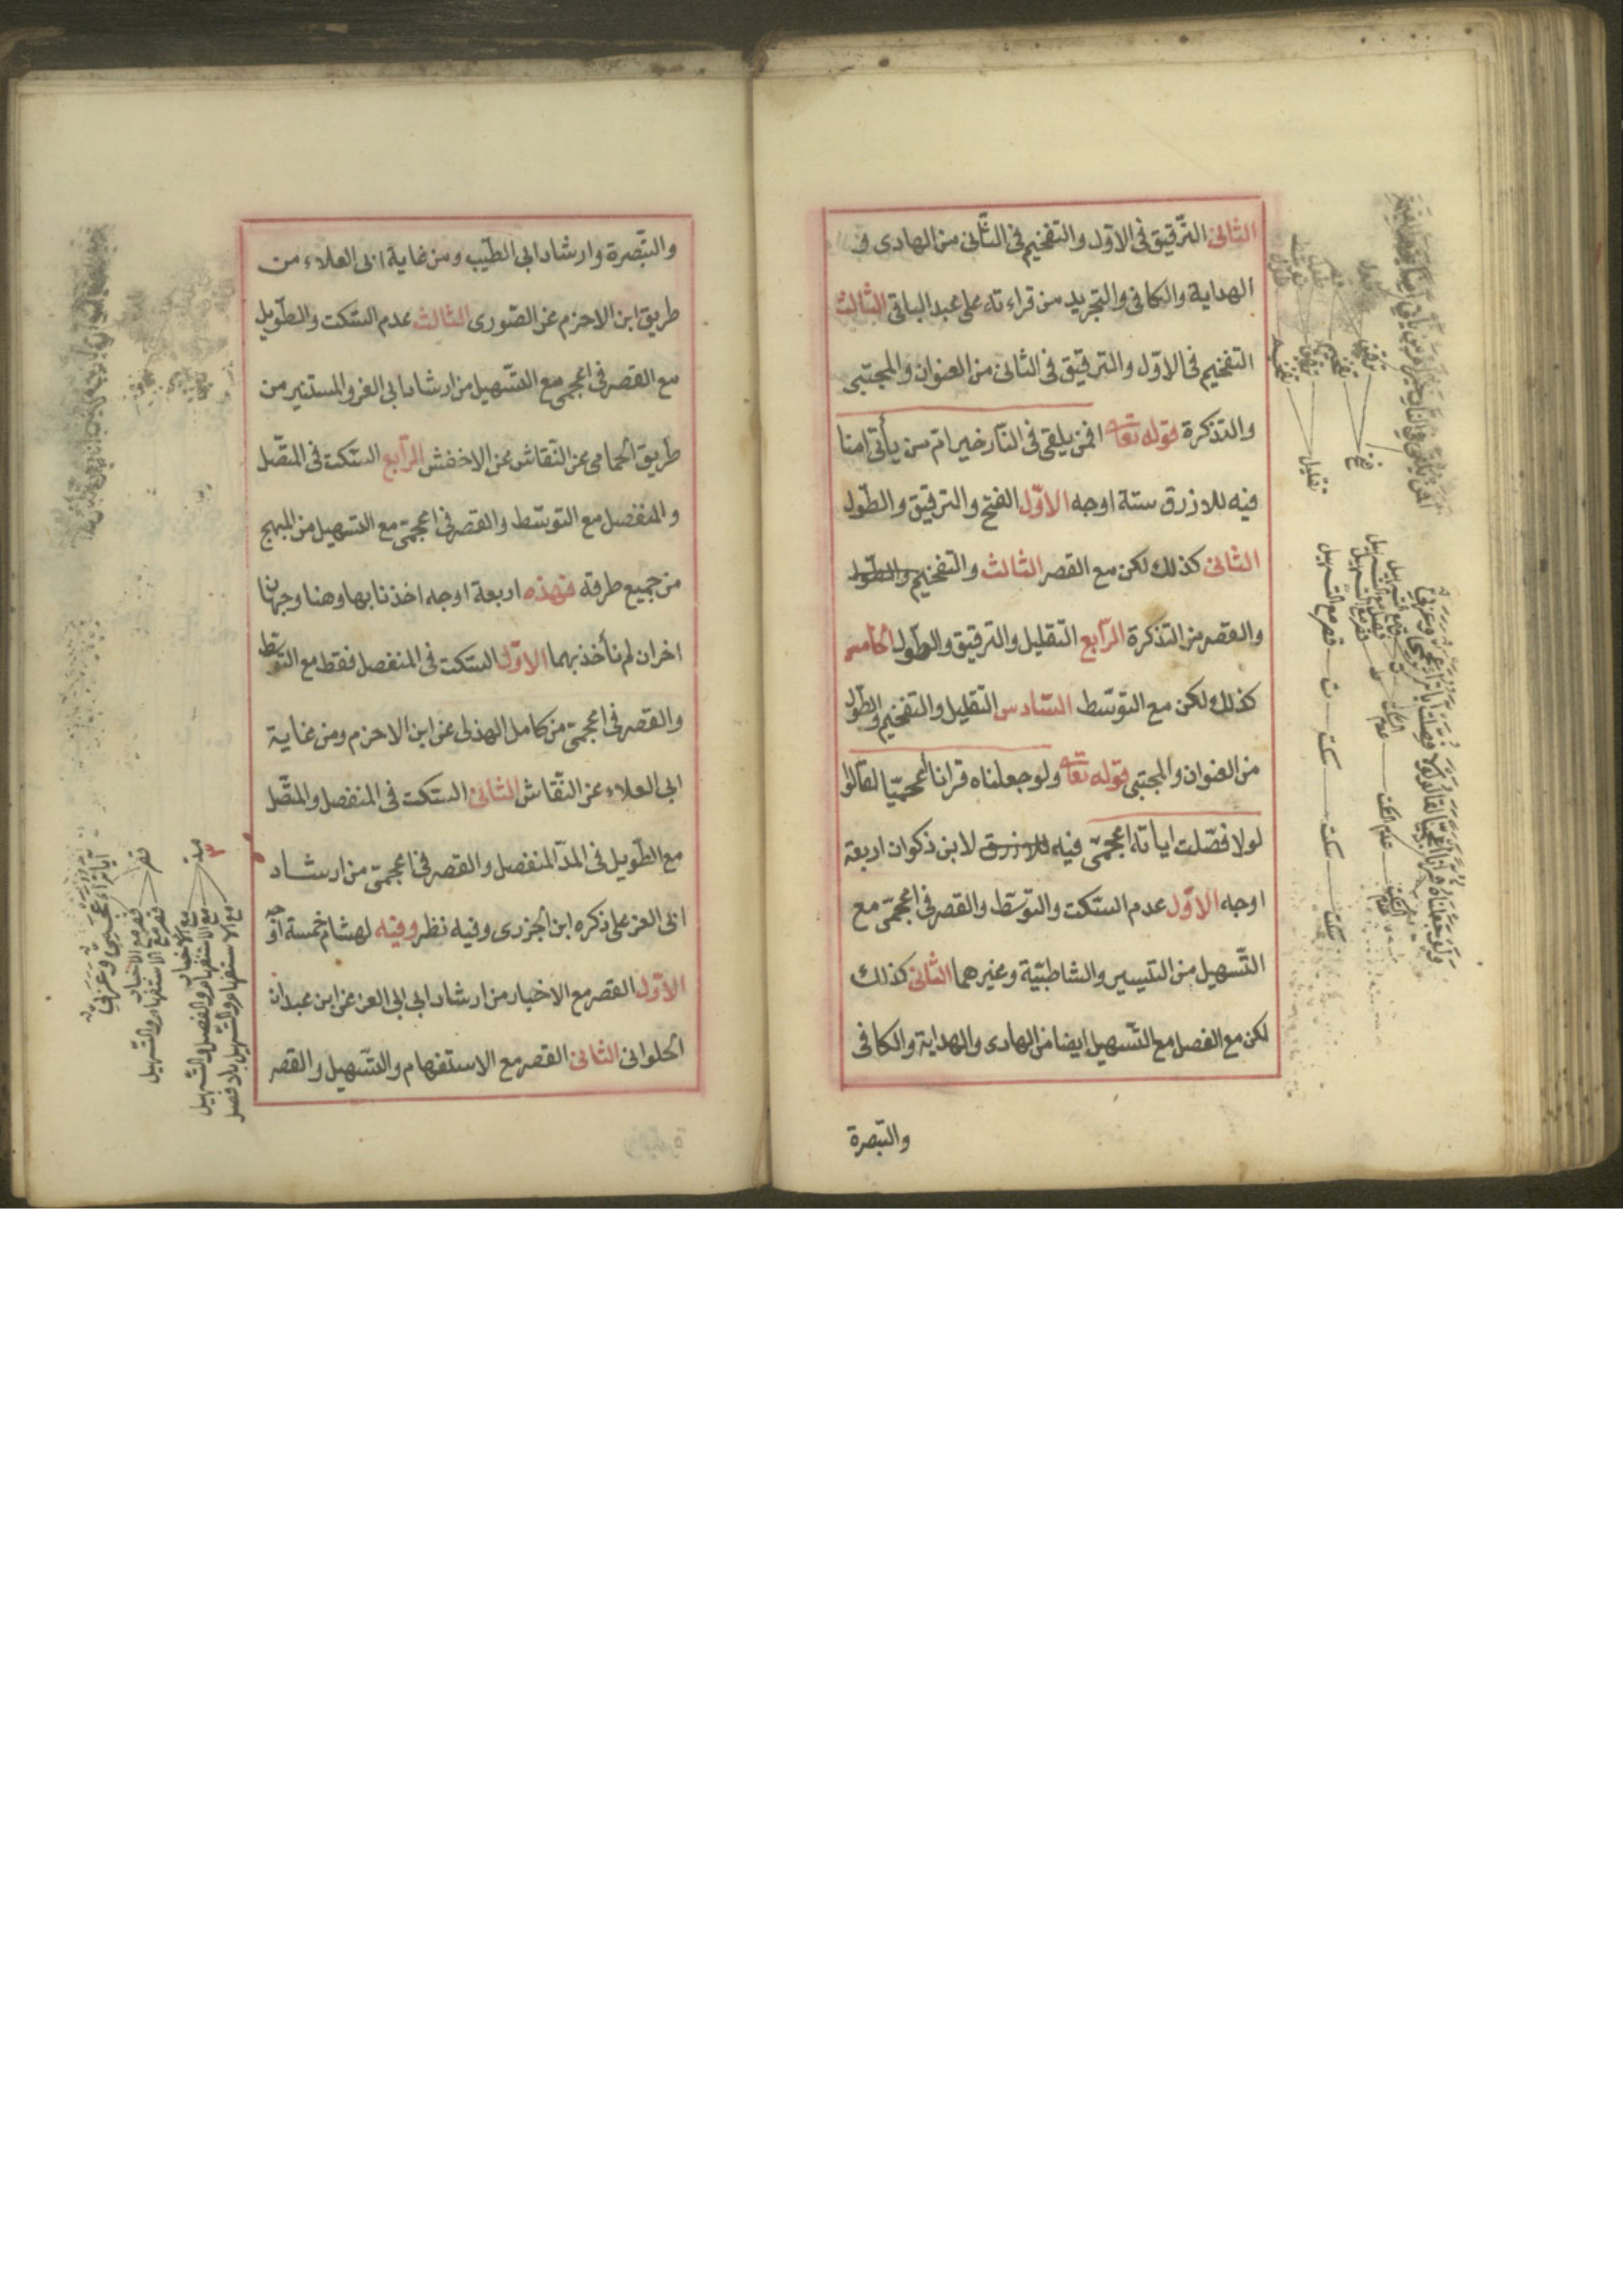 الثانى الترقيق فى الاول والتفخيم فى الثانى من الهادى و
الهداية والكافى والتجريد من قراءته على عبد الباقى الثالث
التفخيم فى الاول والترقيق فى الثانى من العنوان والمجتبى
والتذكرة قوله تعالى افمن يلقى فى النار خير ام من يأتى امنا
فيه للازرق ستة اوجه الاول الفتح والترقيق والطول
الثانى كذلك لكن مع القصر الثالث والتفخيم والطول
والقصر من التذكرة الرابع التقليل والترقيق والطول الخامس
كذلك لكن مع التوسط السادس التقليل والتفخيم والطول
من العنوان والمجتبى قوله تعالى ولو جعلناه قرانا اعجميا لقالوا
لولا فصلت اياته اعجمى فيه للازرق لابن ذكوان اربعة
اوجه الاول عدم السكت والتوسط والقصر فى اعجمى مع
التسهيل من التيسير والشاطبية وغيرهما الثانى كذلك
لكن مع الفصل مع التسهيل ايضا من الهادى والهداية والكافى
والتبصرة
ترقيق
تفخيم
ترقيق
تفخيم
فتح
تقليل
قصر مع التسهيل
ت
سكت
سكت
سكت
عدم السكت
عدم السكت
والتبصرة وارشاد ابى الطيب ومن غاية ابى العلاء من
طريق ابن الاحزم عن الصورى الثالث عدم السكت والطويل
مع القصر فى اعجمى مع التسهيل من ارشاد ابى العز والمستنير من
طريق الحمامى عن النقاش عن الاخفش الرابع السكت فى المتصل
والمنفصل مع التوسط والقصر فى اعجمى مع التسهيل من المبهج
من جميع طرقه فهذه اربعة اوجه اخذنا بها وهنا وجهان
اخران لم نأخذ بهما الاول السكت فى المنفصل فقط مع التوسط
والقصر فى اعجمى من كامل الهذلى عن ابن الاحزم ومن غاية
ابى العلاء عن النقاش الثانى السكت فى المنفصل والمتصل
مع الطويل فى المد المنفصل والقصر فى اعجمى من ارشاد
ابى العز على ذكره ابن الجزرى وفيه نظر وفيه لهشام خمسة اوجه
الاول القصر مع الاخبار من ارشاد ابى ابى العز عن ابن عبدان
الحلوانى الثانى القصر مع الاستفهام والتسهيل والقصر
قصر
قصر مع الاخبار
قصر مع الاستفهام والتسهيل
مد
مع الاخبار
مع الاستفهام والفصل والتسهيل
مع الاستفهام والتسهيل بلا فصل